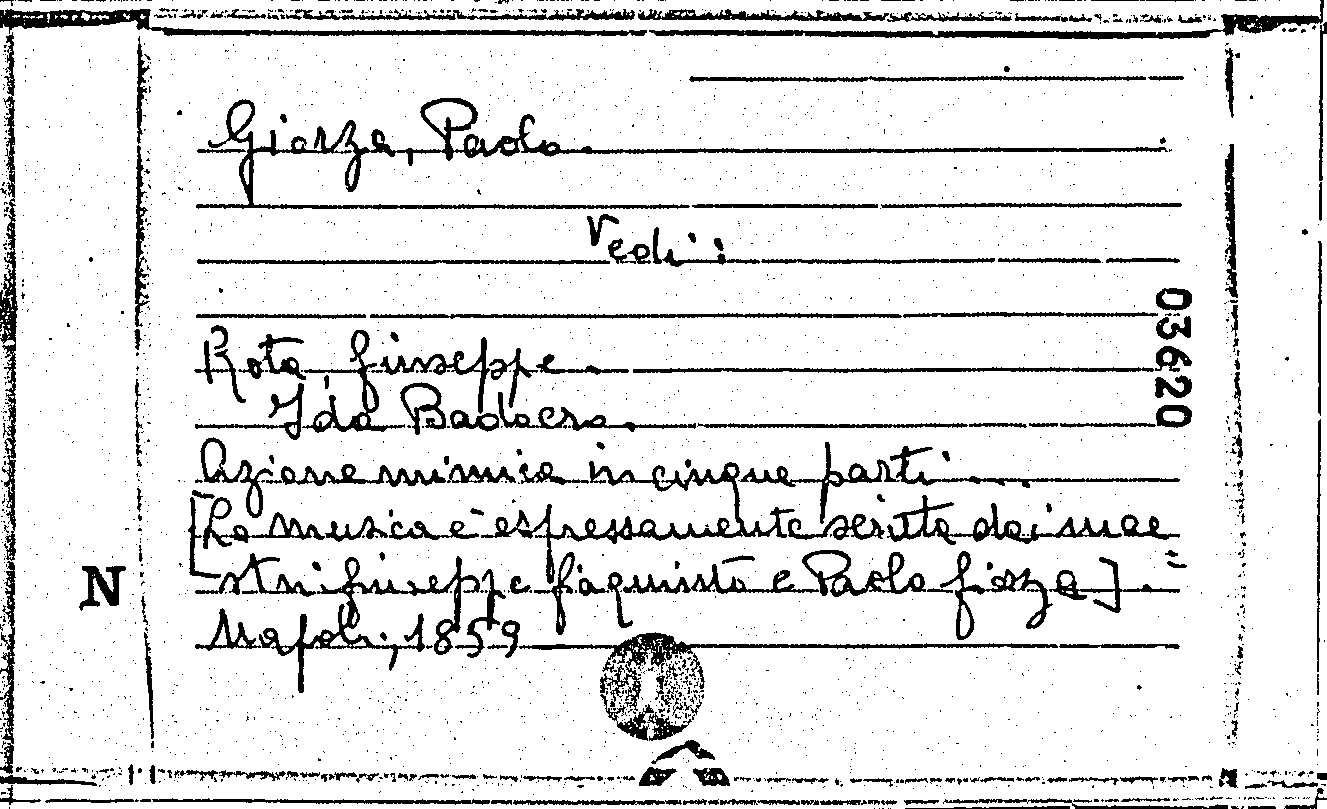 Giorza, Paolo.
Vedi:
Rota, Giuseppe.
Ida Badoera.
Azione mimica in cinque parti....
[La musica è espressamente scritta dai mae=
stri Giuseppe Giaquinto e Paolo Giorza].
Napoli, 1859
03620
N